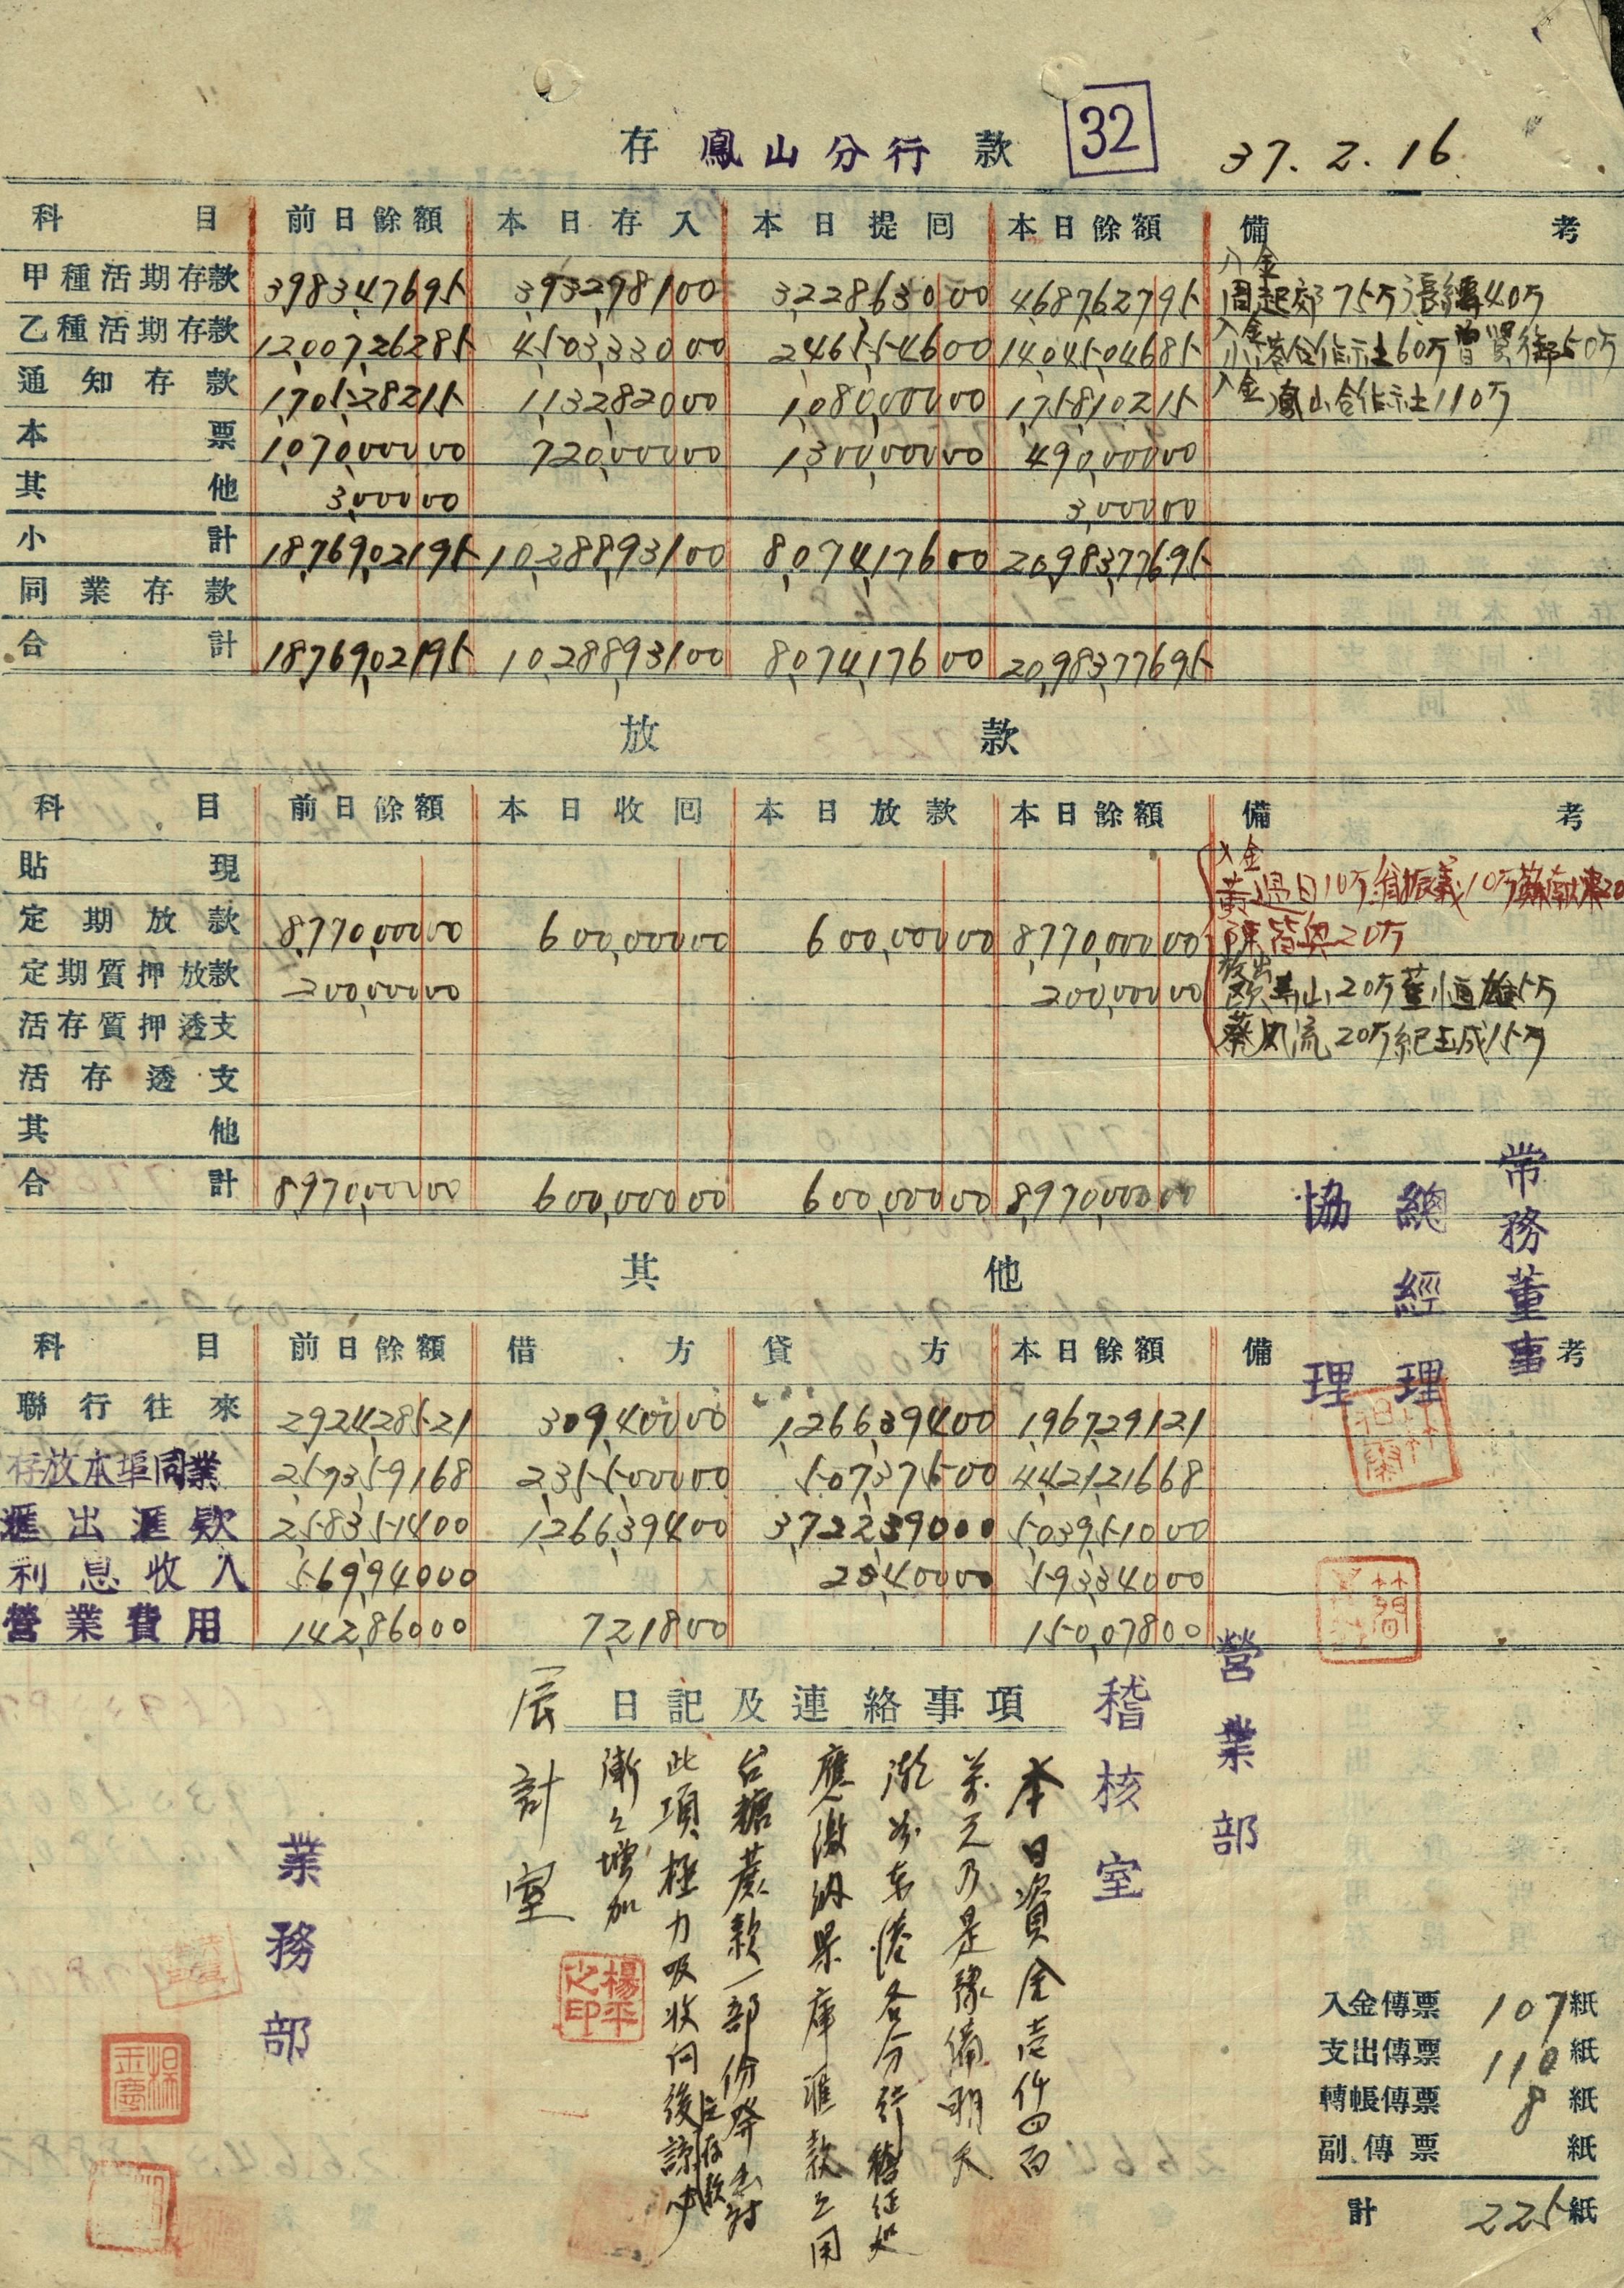 存 鳳山分行 款 32 37.2.16
科目 前日餘額 本日存入 本日提回 本日餘額 備考
入金
甲種活期存款 398,347,695 393,298,100 322,863,000 468,762,795 周起郊75万 張繩40万
乙種活期存款 1,200,726,285 450,333,000 246,554,600 1,404,504,685 入金 小港合作社60万 曾賢御50万
通知存款 170,528,215 113,282,000 108,000,000 175,810,215 入金 鳳山合作社110万
本票 107,000,000 72,000,000 130,000,000 49,000,000
其他 300,000 300,000
小計 1,876,902,195 1,028,893,100 807,417,600 2,098,377,695
同業存款
合計 1,876,902,195 1,028,893,100 807,417,600 2,098,377,695
放款
科目 前日餘額 本日收回 本日放款 本日餘額 備考
入金
貼現
定期放款 877,000,000 60,000,000 60,000,000 877,000,000 20万
定期質押放款 20,000,000 20,000,000 放出 壽山20万
活存質押透支 蔡風流20万 紀玉成15万
活存透支
其他
合計 897,000,000 60,000,000 60,000,000 897,000,000
常務董事
總經理
協理
其他
科目 前日餘額 借方 貸方 本日餘額 備考
聯行往來 292,428,521 30,940,000 126,639,400 196,729,121
存放本埠同業 257,359,168 235,500,000 50,737,500 442,121,668
匯出匯款 258,351,400 126,639,400 372,239,000 503,951,000
利息收入 56,994,000 2,340,000 59,334,000
營業費用 14,286,000 721,800 15,007,800
營業部
稽核室
日記及連絡事項
本日資金壱仟四百
萬元乃是豫備明天
潮州東港各分行
應繳納県庫匯款之用
台糖蔗款一部份
此項極力吸收向後
漸々增加
楊平之印
計室
業務部
入金傳票 107紙
支出傳票 110紙
轉帳傳票 8紙
副傳票 紙
計 225紙